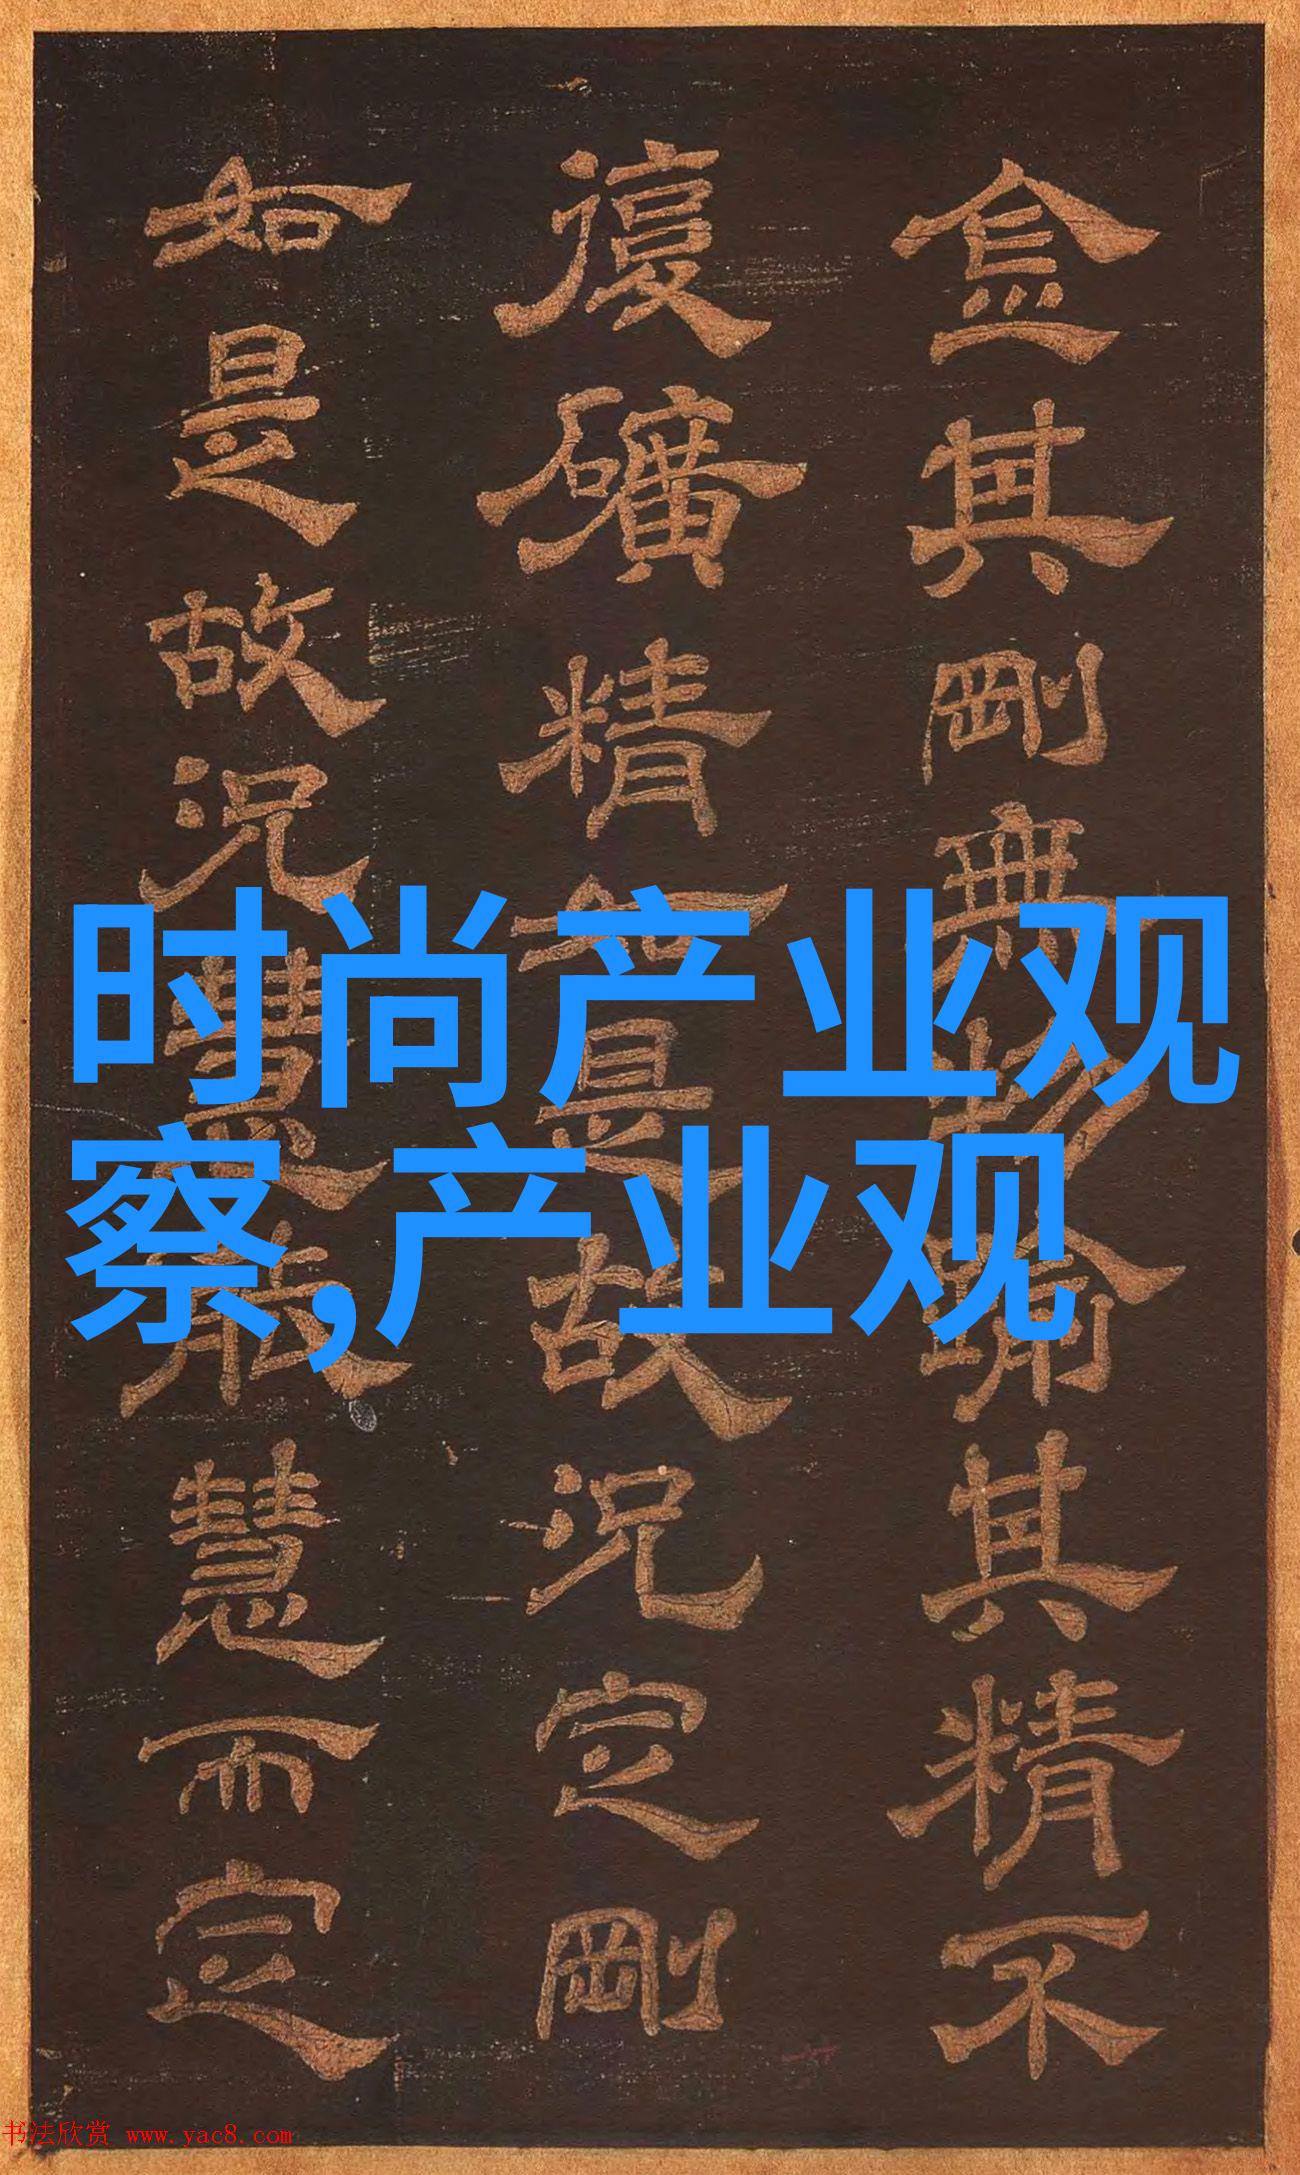 金其剛無物踰其精不
復礦精如是故況定剛
如是故況慧般慧而定
时尚产业观
察,产业观
书法欣赏 www.yac8.com